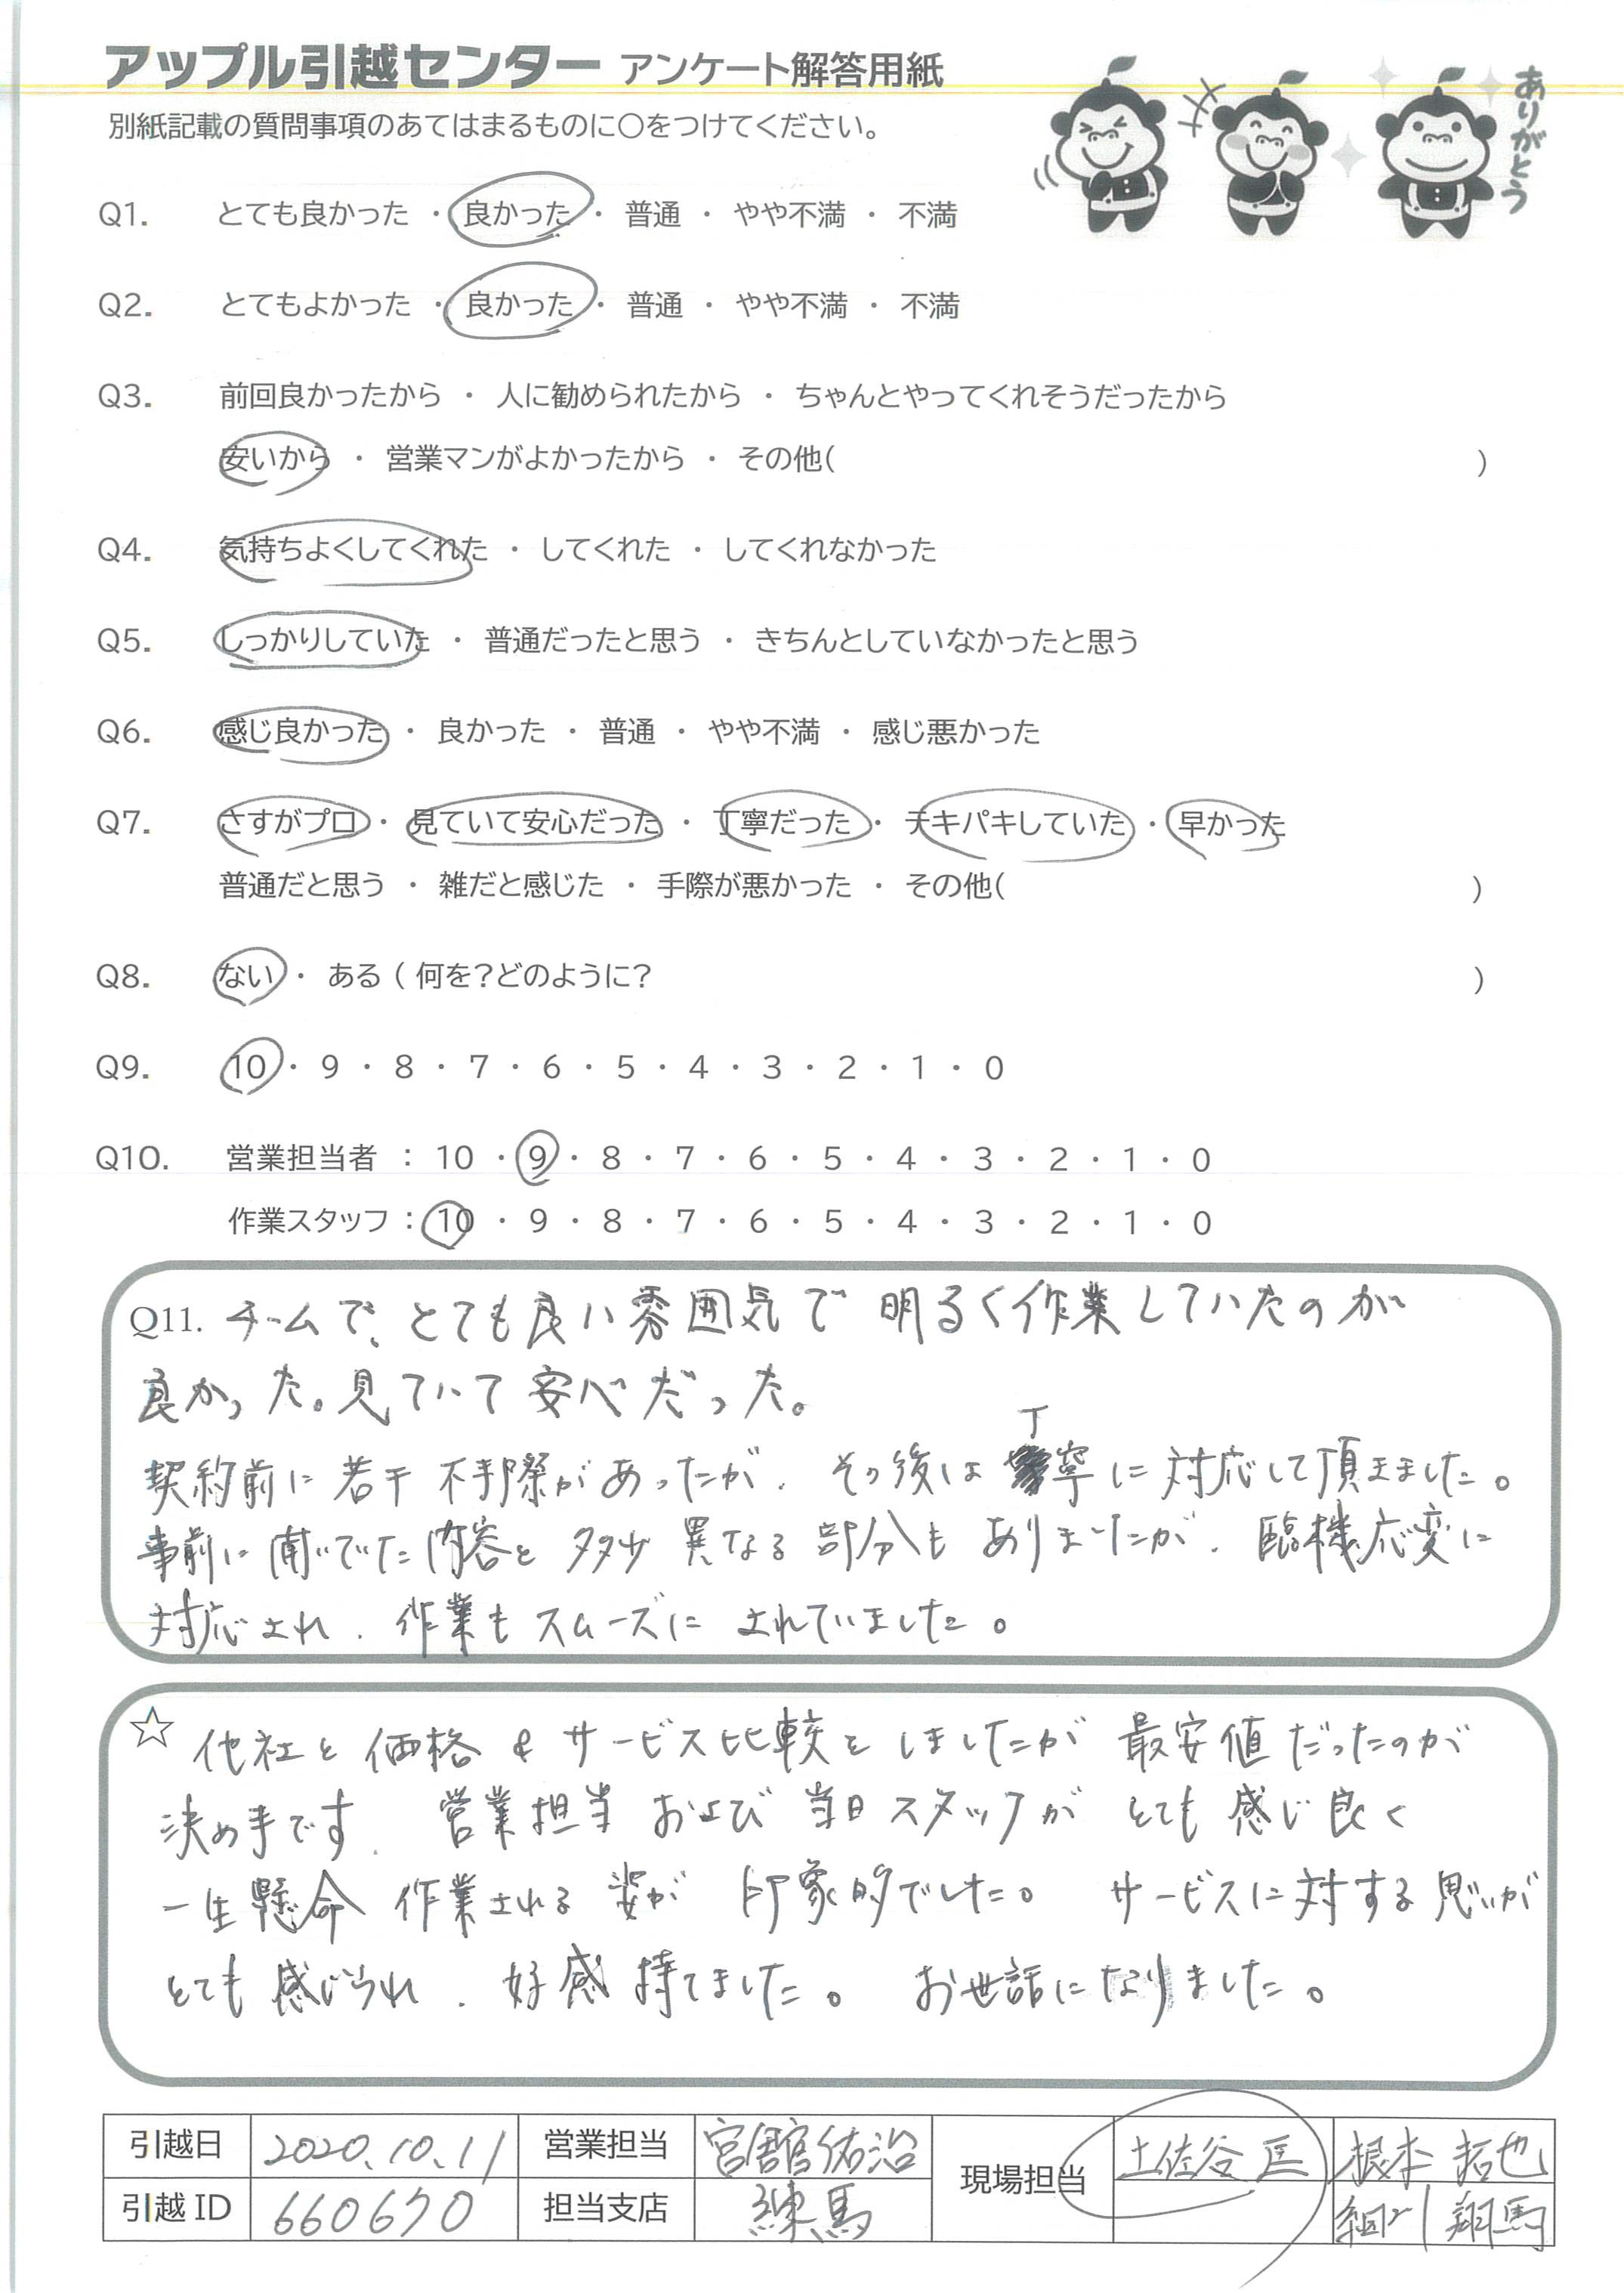 アップル引越センター アンケート解答用紙
別紙記載の質問事項のあてはまるものに○をつけてください。
ありがとう
Q1. とても良かった ・ 良かった ・ 普通 ・ やや不満 ・ 不満
Q2. とてもよかった ・ 良かった ・ 普通 ・ やや不満 ・ 不満
Q3. 前回良かったから ・ 人に勧められたから ・ ちゃんとやってくれそうだったから
安いから ・ 営業マンがよかったから ・ その他( )
Q4. 気持ちよくしてくれた ・ してくれた ・ してくれなかった
Q5. しっかりしていた ・ 普通だったと思う ・ きちんとしていなかったと思う
Q6. 感じ良かった ・ 良かった ・ 普通 ・ やや不満 ・ 感じ悪かった
Q7. さすがプロ ・ 見ていて安心だった ・ 丁寧だった ・ テキパキしていた ・ 早かった
普通だと思う ・ 雑だと感じた ・ 手際が悪かった ・ その他( )
Q8. ない ・ ある ( 何を?どのように? )
Q9. 10 ・ 9 ・ 8 ・ 7 ・ 6 ・ 5 ・ 4 ・ 3 ・ 2 ・ 1 ・ 0
Q10. 営業担当者 : 10 ・ 9 ・ 8 ・ 7 ・ 6 ・ 5 ・ 4 ・ 3 ・ 2 ・ 1 ・ 0
作業スタッフ : 10 ・ 9 ・ 8 ・ 7 ・ 6 ・ 5 ・ 4 ・ 3 ・ 2 ・ 1 ・ 0
Q11. チームで、とても良い雰囲気で明るく作業していたのが
良かった。見ていて安心だった。
契約前に若干不手際があったが、その後は丁寧に対応して頂きました。
事前に聞いてた内容と多少異なる部分もありましたが、臨機応変に
対応され、作業もスムーズにされていました。
☆ 他社と価格&サービス比較をしましたが最安値だったのが
決め手です。営業担当および当日スタッフがとても感じ良く
一生懸命作業される姿が印象的でした。サービスに対する思いが
とても感じられ、好感持てました。お世話になりました。
引越日 2020.10.11 営業担当 宮舘佑治 現場担当 土佐谷 匡 根本 拓也
引越ID 660670 担当支店 練馬 細川 翔馬